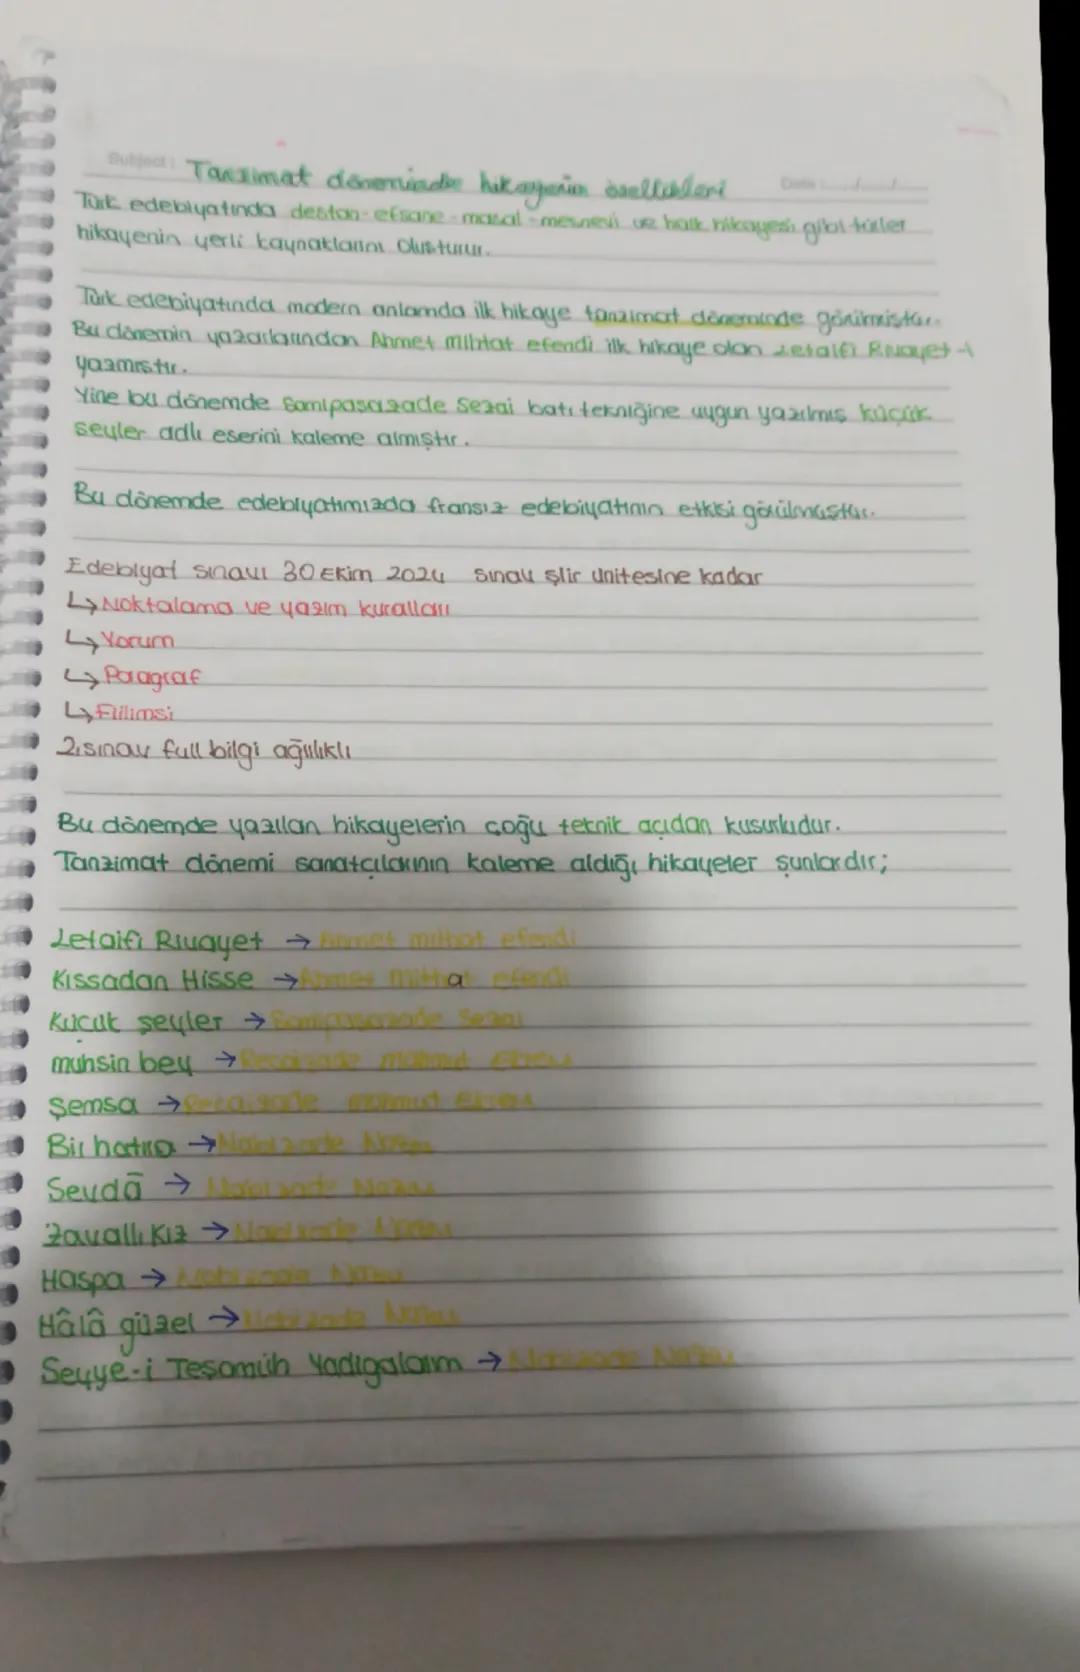 Subject: Tanzimat döneminde hikayenin özellikleri Date
Türk edebiyatında destan-efsane-masal-mesnevi ve halk hikayesi gibi türler
hikayenin yerli kaynaklarını oluşturur.
Türk edebiyatında modern anlamda ilk hikaye tanzimat döneminde görülmüştür.
Bu dönemin yazarlarından Ahmet Mithat efendi ilk hikaye olan Letaifi Rivayet-i
yazmıştır.
Yine bu dönemde Samipaşazade Sezai batı tekniğine uygun yazılmış küçük
şeyler adlı eserini kaleme almıştır.
Bu dönemde edebiyatımızda fransız edebiyatının etkisi görülmüştür.
Edebiyat sınavı 30 Ekim 2024 sınav şiir ünitesine kadar
↳ Noktalama ve yazım kuralları
↳ Yorum
↳ Paragraf
↳ Fiilimsi
2.sınav full bilgi ağırlıklı
Bu dönemde yazılan hikayelerin çoğu teknik açıdan kusurludur.
Tanzimat dönemi sanatçılarının kaleme aldığı hikayeler şunlardır;
Letaifi Rivayet → Ahmet mithat efendi
Kıssadan Hisse → Ahmet mithat efendi
Küçük şeyler → Samipaşazade Sezai
muhsin bey → Recaizade mahmut Ekrem
Şemsa → Recaizade mahmut Ekrem
Bir hatıra → Nabizade Nazım
Sevdâ → Nabizade Nazım
Zavallı Kız → Nabizade Nazım
Haspa → Nabizade Nazım
Hâlâ güzel → Nabizade Nazım
Seyye-i Tesamüh Yadigalarım → Nabizade Nazım